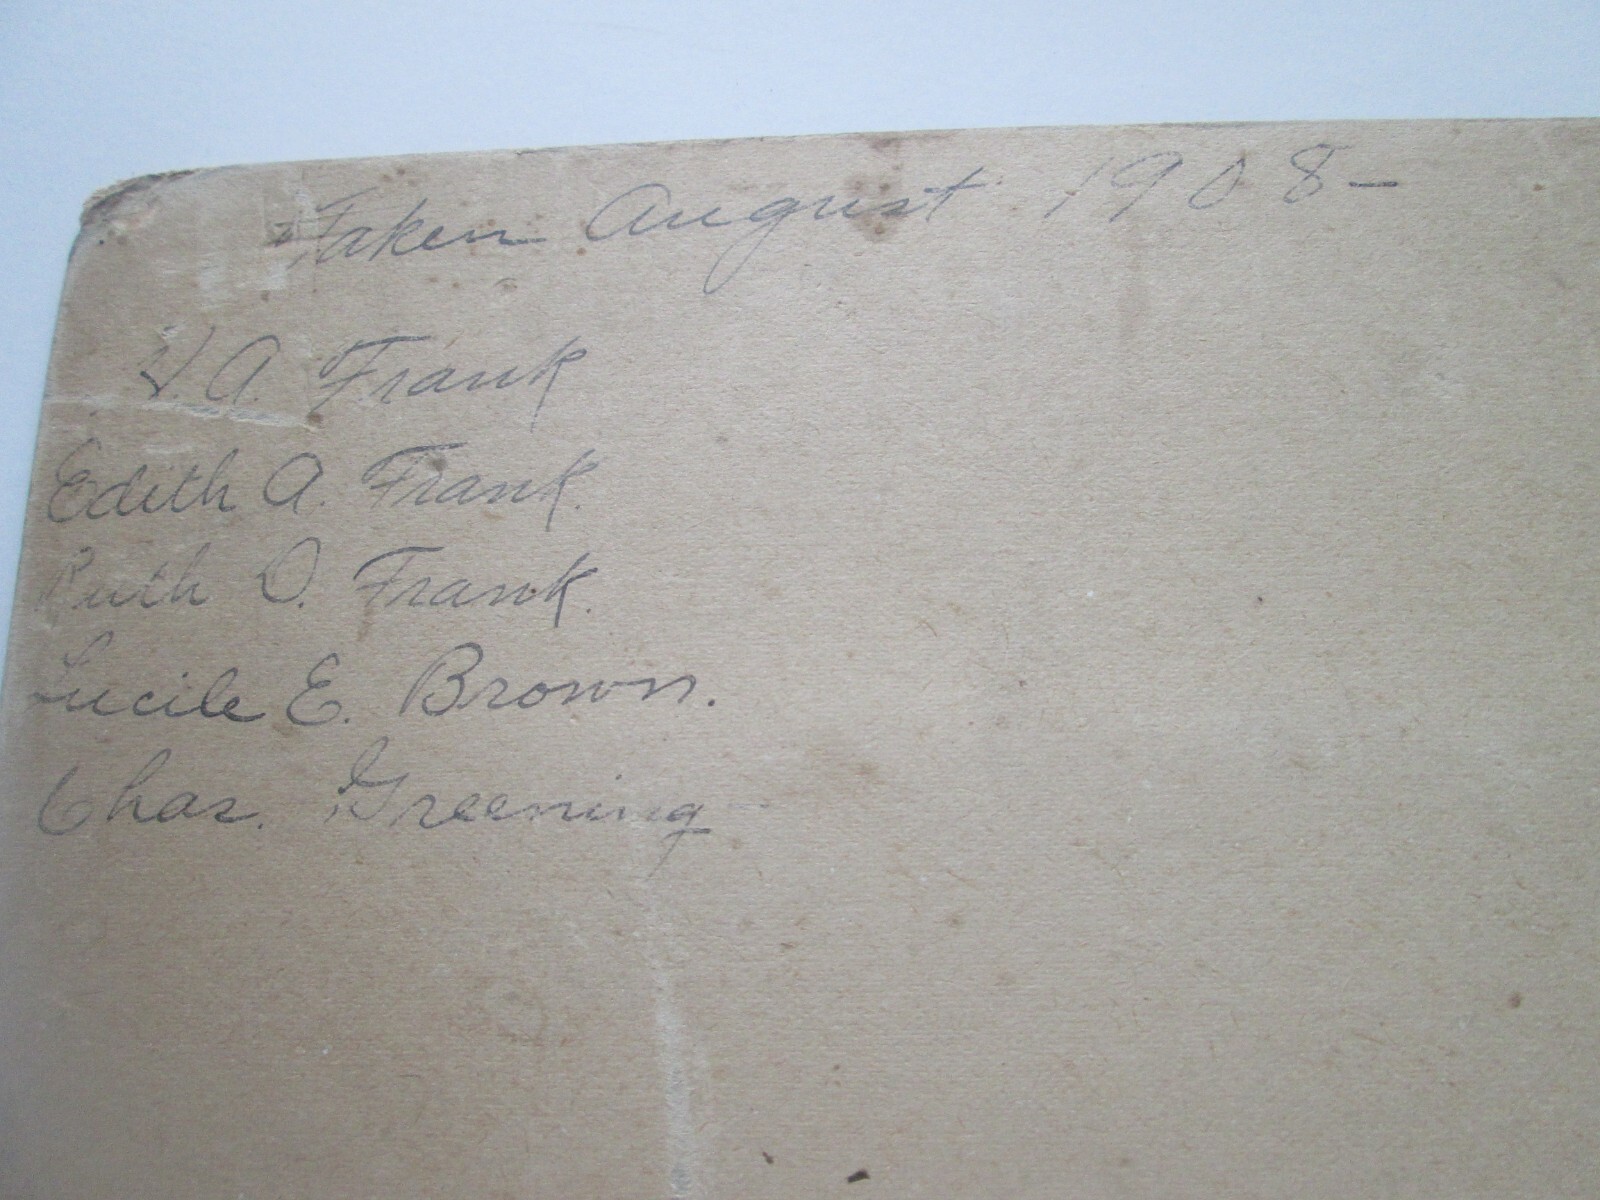 Taken August 1908-
A. Frank
Edith A. Frank.
Ruth O. Frank.
Lucile E. Brown.
Chas. Greening